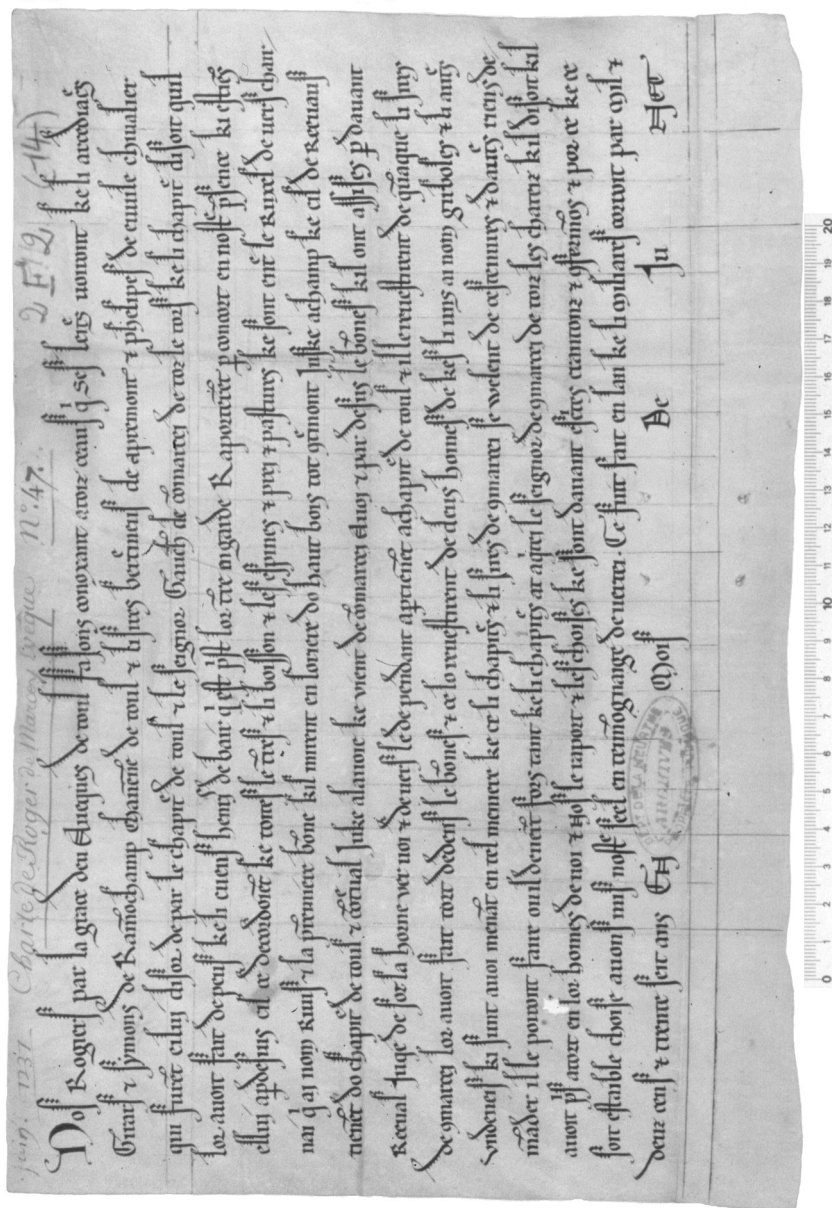 juin. 1237 Charte de Roger de Marcey evêque N.º 47. 2 F 2 (14)
Nos Rogiers par la grace deu Avesques de toul faisons conoxant a toz ceaus q̍ ses lettres uorront ke li arcediaꝯes
Gerars ⁊ symons de Ramōchamp chanoēne de toul ⁊ li sires bertineus de apremont ⁊ phelipes de euuile cheualier
qui furēt eslui disor de par le chapit̄ de toul ⁊ le seignor Gauth̄ de cōmarcei de toz le torz ke li chapit̄ disoit quil
lor auoit fait de peus ke li cuens henris de bair q̍ est p̍st lor t̄re en garde Raporterēt p comort en nost̄ psence ki
eslui apdesuis cil ce decordonēt ke totes le t̄res ⁊ li boisson ⁊ les espines ⁊ prei ⁊ pasturs ke sont ent̄ le Ruxel de uers
nai q̍ ai nom Ruiss ⁊ la premiere bone kil mirent en loriere do haut bois tot gtmont iuske achamp ke cil de Receuaus
tienēt do chapit̄ de toul ⁊ cōtual iuke alauoie ke vient de cōmarcei a uoi ⁊ par desuis le bones kil ont assises p dauant
Receual iuqe de sor la horne ver uoi ⁊ deuers le de pendant aptienēt achapit̄ de toul ⁊ ille reuestirent de q̄uaque li sires
de ꝯmarcei lor auoit fait tort dedens le bones ⁊ ce lo reuestirent de deus homes de kes li uns ai nom guiboles ⁊ li autres
vuideneis ki sunt a uoi menāt en tel meniere ke ce li chapitres ⁊ li sires de ꝯmarcei se welent de cest ⁊ dautres riens de
māder il le poront faire ou il deuerōt fors tant ke li chapitres at aq̍tei le seignor de ꝯmarcei de toz les chateiz kil disoit kil
auoit ps atort en lor homes de uoi ⁊ Nos le raport ⁊ les choses ke sont dauant escrites creantons ⁊ ꝯfermons ⁊ por ce ke ce
soit estaible chose auons mis nost̄ seel en tesmognange de ueritei. Ce fuit fait en lan ke li miliares corroit par mil ⁊
deuz cens ⁊ trente seit ans EN Mois De Ju Net
DE LA MEURTHE
0 1 2 3 4 5 6 7 8 9 10 11 12 13 14 15 16 17 18 19 20